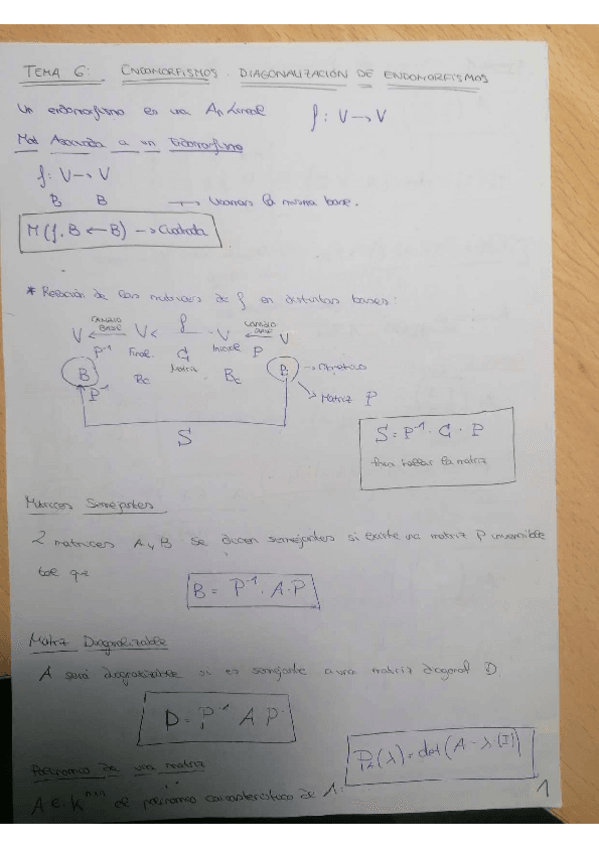 TEMA 6: ENDOMORFISMOS. DIAGONALIZACIÓN DE ENDOMORFISMOS
Un endomorfismo es una Ap Lineal f: V → V
Mat Asociada a un Endomorfismo
f: V → V
B B → Usamos la misma base.
M(f, B ← B) → Cuadrada
* Relación de las matrices de f en distintas bases:
CAMBIO BASE f CAMBIO BASE
V ← V ← V ← V
P⁻¹ Final G Inicial P
B Bc Matriz Bc B → Objetivo
P⁻¹ → Matriz P
S
S = P⁻¹ · G · P
para hallar la matriz
Matrices Semejantes
2 matrices A y B se dicen semejantes si existe una matriz P inversible
tal que
B = P⁻¹ · A · P
Matriz Diagonalizable
A será diagonalizable si es semejante a una matriz diagonal D.
D = P⁻¹ A P
Polinomio de una matriz
P(λ) = det (A - λ · (I))
A ∈ K^nxn el polinomio característico de A:
1